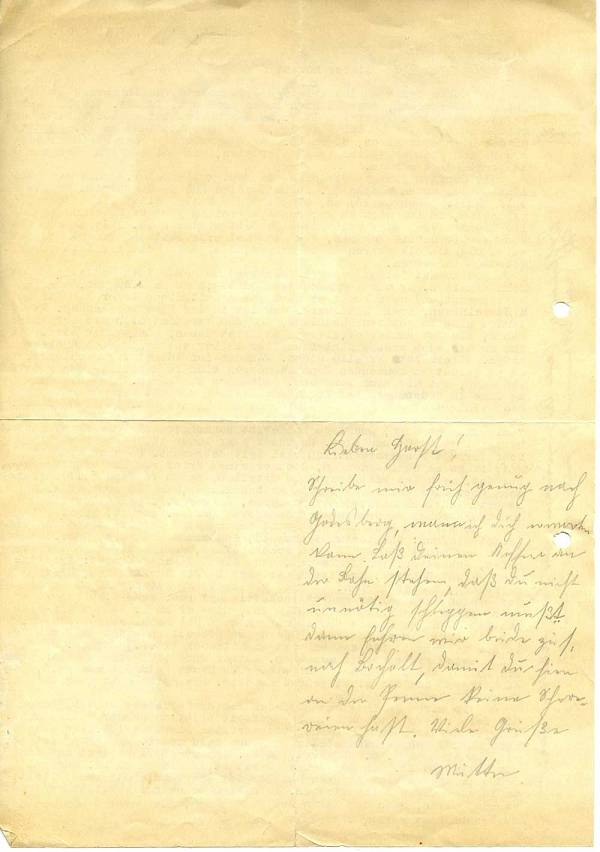 Lieber Horst!
Schreibe mir früh genug nach
Godesberg, wann ich dich erwarten
kann. Laß deinen Koffer an
der Bahn stehen, daß du nicht
unnötig schleppen mußt,
dann fahren wir beide zus.
nach Bocholt, damit du hier
an der Penne keine Schere-
reien hast. Viele Grüße
Mutter